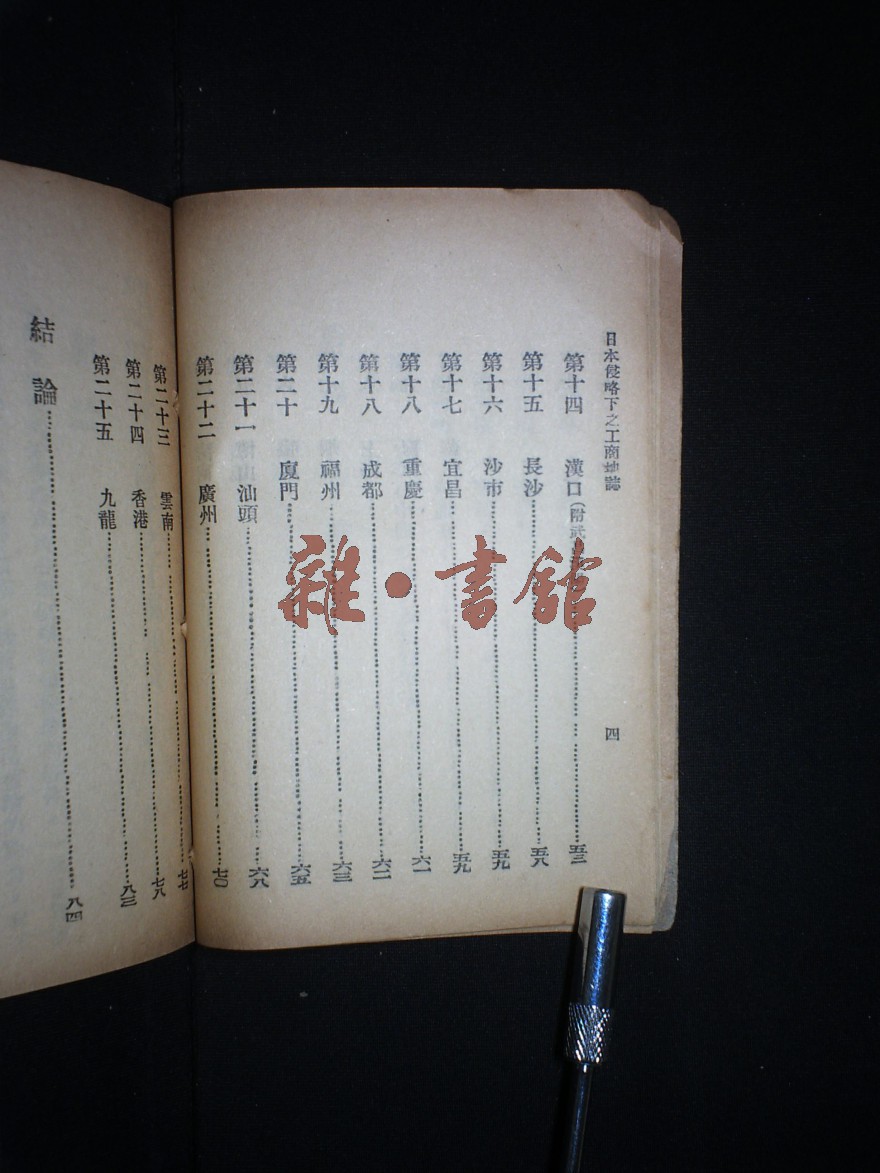 日本侵略下之工商地誌 四
第十四 漢口(附武……五三
第十五 長沙……五八
第十六 沙市……五九
第十七 宜昌……五九
第十八 重慶……六一
第十八 成都……六二
第十九 福州……六三
第二十 廈門……六五
第二十一 汕頭……六八
第二十二 廣州……七〇
第二十三 雲南……七七
第二十四 香港……七八
第二十五 九龍……八三
結論……八四
雜·書館